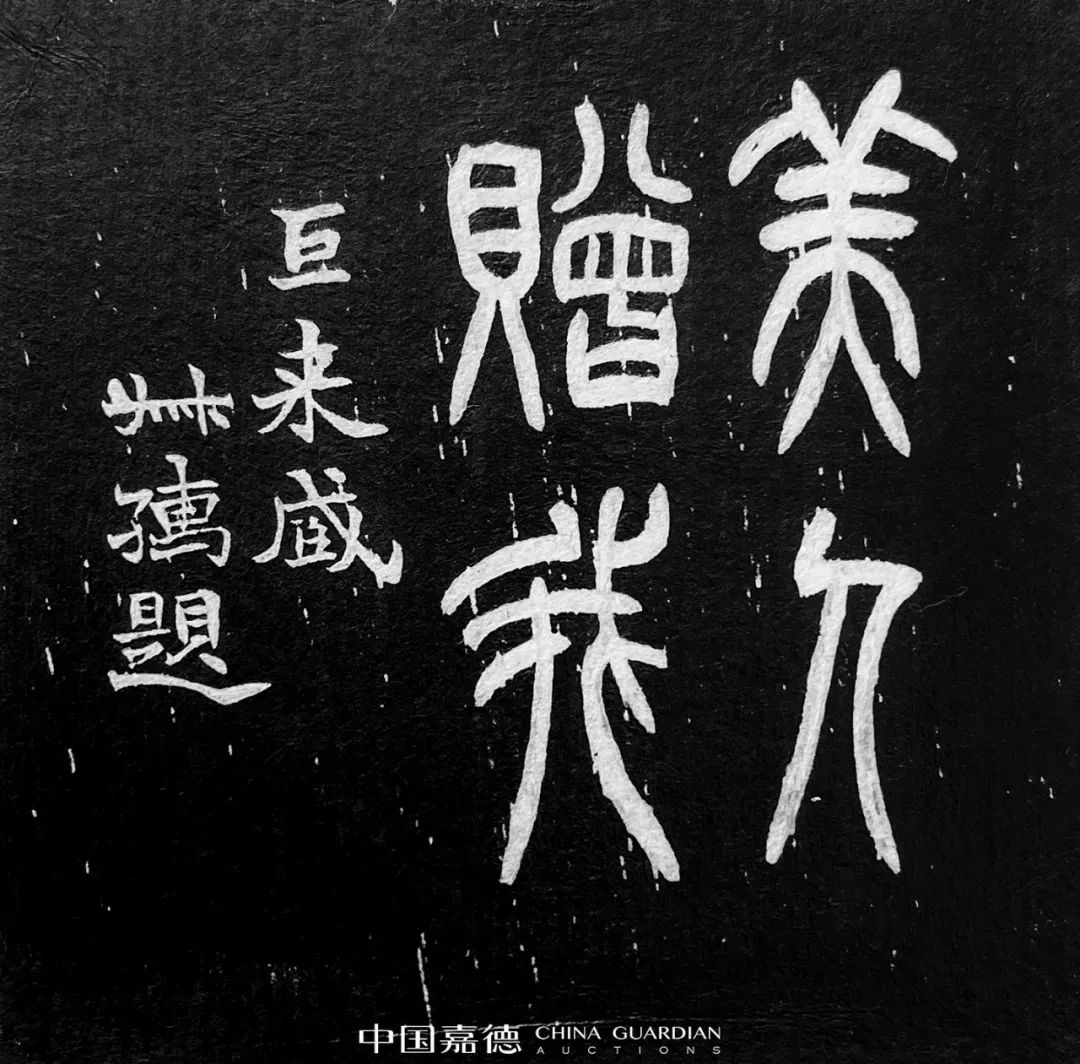 美人
贈我
巨来臧
叔孺題
中国嘉德 CHINA GUARDIAN
AUCTIONS